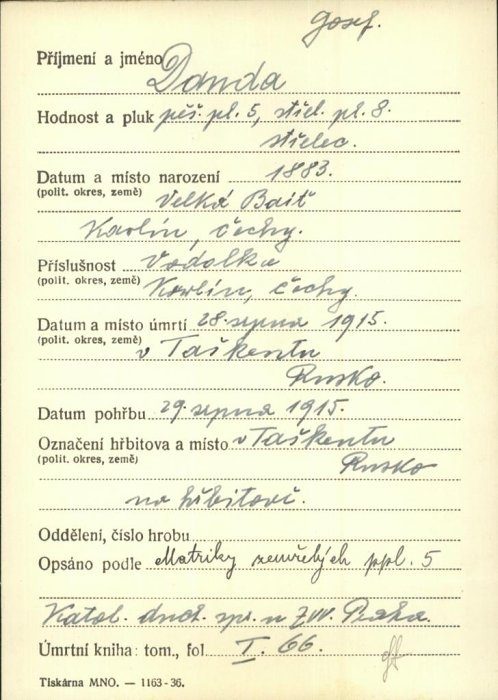 Josef.
Příjmení a jméno Danda
Hodnost a pluk pěš. pl. 5, střel. pl. 8.
střelec.
Datum a místo narození 1883.
(polit. okres, země) Velká Bašť
Karlín, Čechy.
Příslušnost Vodolka
(polit. okres, země) Karlín, Čechy.
Datum a místo úmrtí 28. srpna 1915.
(polit. okres, země) v Taškentu
Rusko.
Datum pohřbu 29. srpna 1915.
Označení hřbitova a místo v Taškentu
(polit. okres, země) Rusko
na hřbitově.
Oddělení, číslo hrobu
Opsáno podle Matriky zemřelých ppl. 5
Katol. duch. spr. u ZVV. Praha.
Úmrtní kniha: tom., fol I. 66.
Tiskárna MNO. — 1163-36.